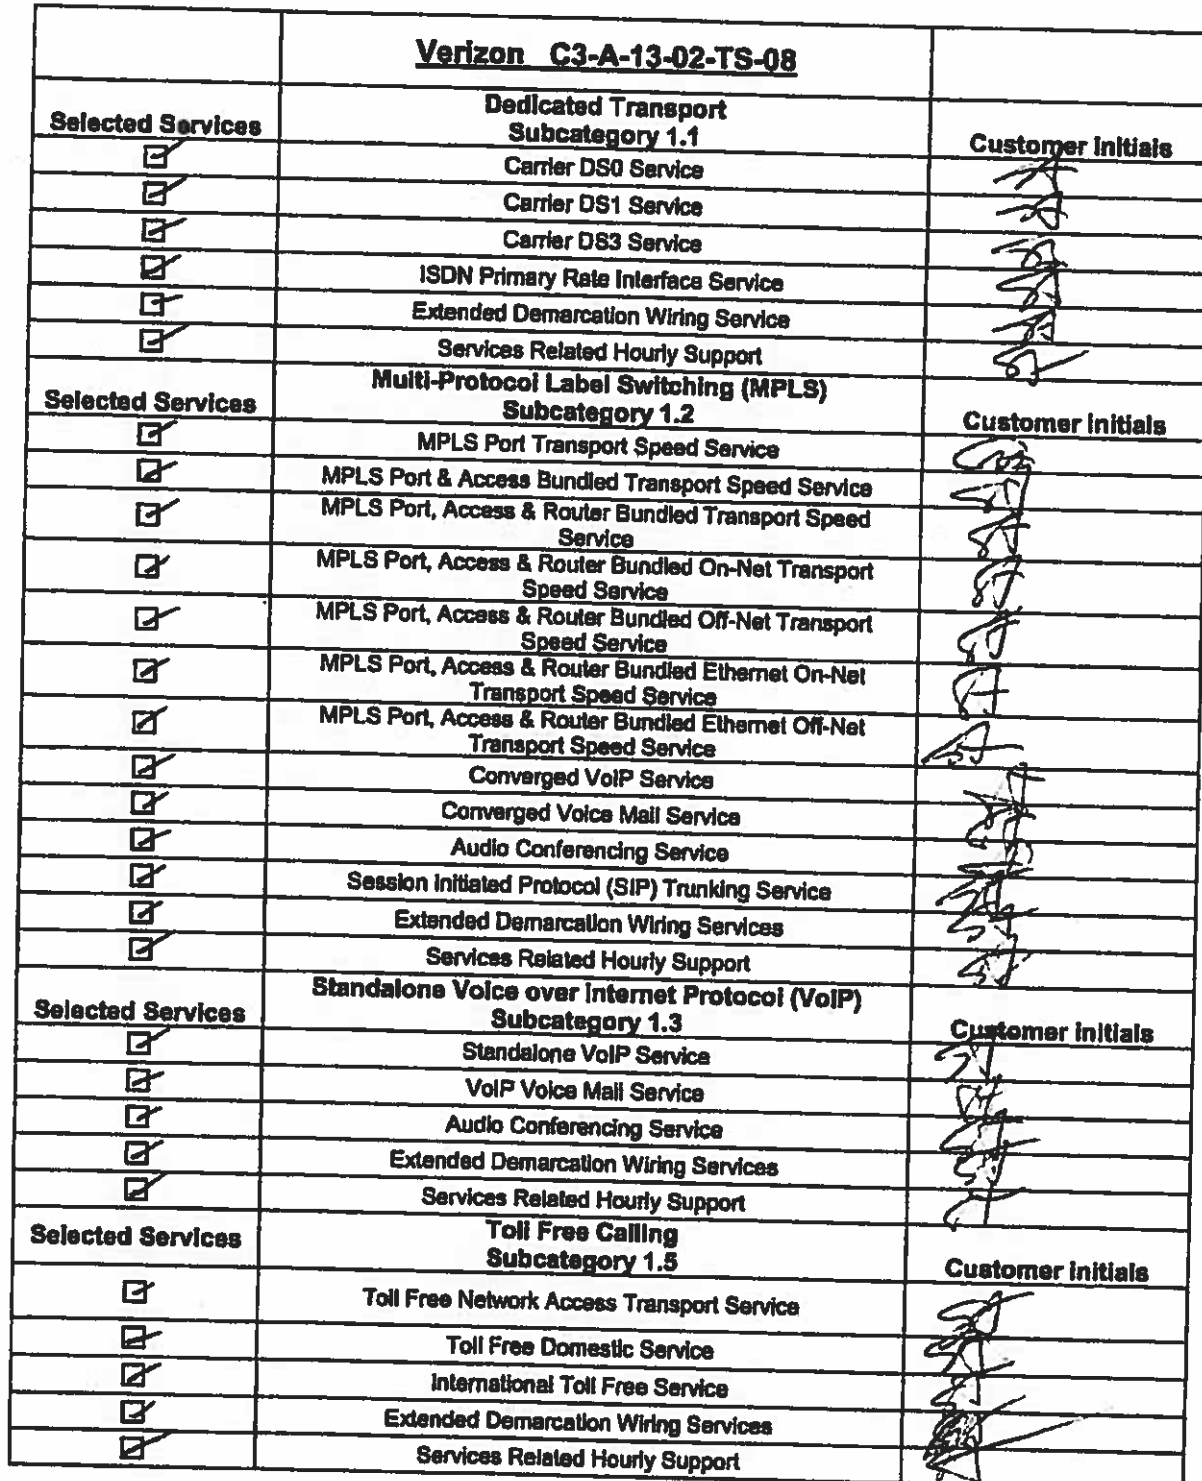 Verizon C3-A-13-02-TS-08
Selected Services
Dedicated Transport
Subcategory 1.1
Customer Initials
Carrier DS0 Service
Carrier DS1 Service
Carrier DS3 Service
ISDN Primary Rate Interface Service
Extended Demarcation Wiring Service
Services Related Hourly Support
Selected Services
Multi-Protocol Label Switching (MPLS)
Subcategory 1.2
Customer Initials
MPLS Port Transport Speed Service
MPLS Port & Access Bundled Transport Speed Service
MPLS Port, Access & Router Bundled Transport Speed
Service
MPLS Port, Access & Router Bundled On-Net Transport
Speed Service
MPLS Port, Access & Router Bundled Off-Net Transport
Speed Service
MPLS Port, Access & Router Bundled Ethernet On-Net
Transport Speed Service
MPLS Port, Access & Router Bundled Ethernet Off-Net
Transport Speed Service
Converged VoIP Service
Converged Voice Mail Service
Audio Conferencing Service
Session Initiated Protocol (SIP) Trunking Service
Extended Demarcation Wiring Services
Services Related Hourly Support
Selected Services
Standalone Voice over Internet Protocol (VoIP)
Subcategory 1.3
Customer Initials
Standalone VoIP Service
VoIP Voice Mail Service
Audio Conferencing Service
Extended Demarcation Wiring Services
Services Related Hourly Support
Selected Services
Toll Free Calling
Subcategory 1.5
Customer Initials
Toll Free Network Access Transport Service
Toll Free Domestic Service
International Toll Free Service
Extended Demarcation Wiring Services
Services Related Hourly Support